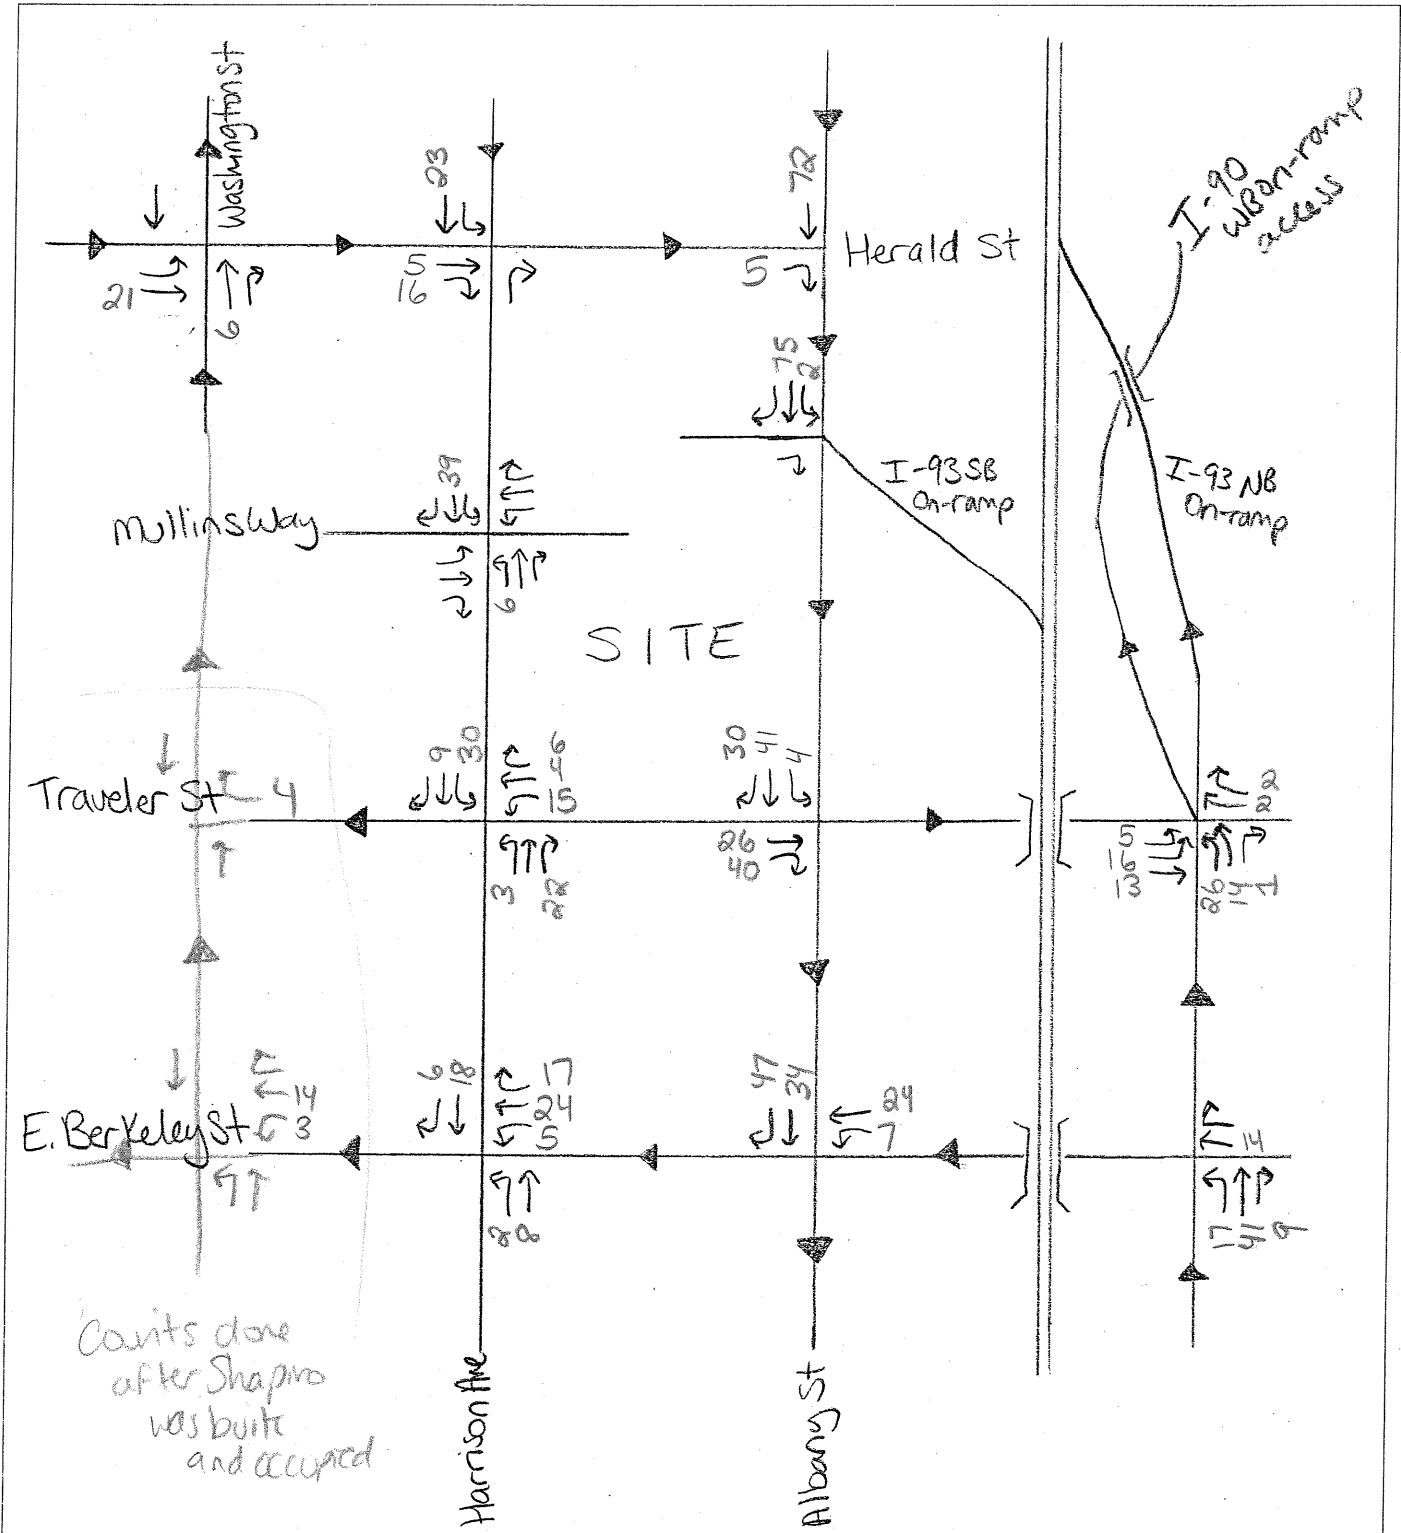 Washington St
23
72
I-90
WB on-ramp
access
Herald St
5
16
5
21
6
75
2
39
I-93 SB
On-ramp
I-93 NB
On-ramp
Mullins Way
6
SITE
9
30
6
4
15
30
41
4
2
2
Traveler St
4
26
40
5
16
13
3
22
26
14
1
6
18
17
24
5
47
34
24
7
14
3
14
E. Berkeley St
2
8
17
41
9
Counts done
after Shapiro
was built
and occupied
Harrison Ave
Albany St